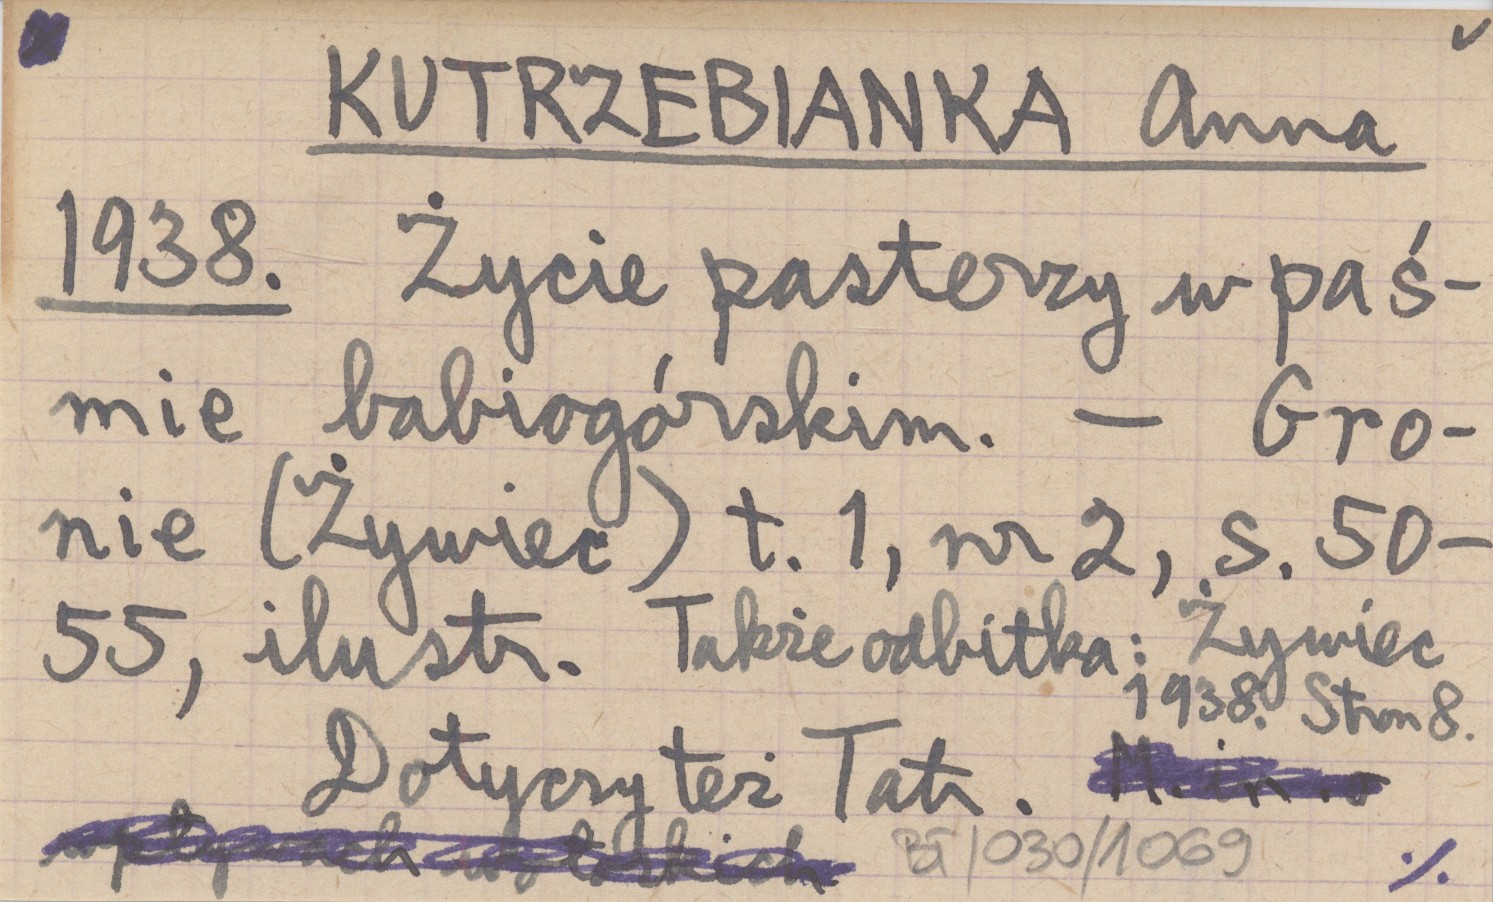 KUTRZEBIANKA Anna
1938. Życie pasterzy w paś-
mie babiogórskim. — Gro-
nie (Żywiec) t. 1, nr 2, s. 50-
55, ilustr. Także odbitka: Żywiec
1938. Stron 8.
Dotyczy też Tatr. M. in. o
wpływach wołoskich
/030/1069